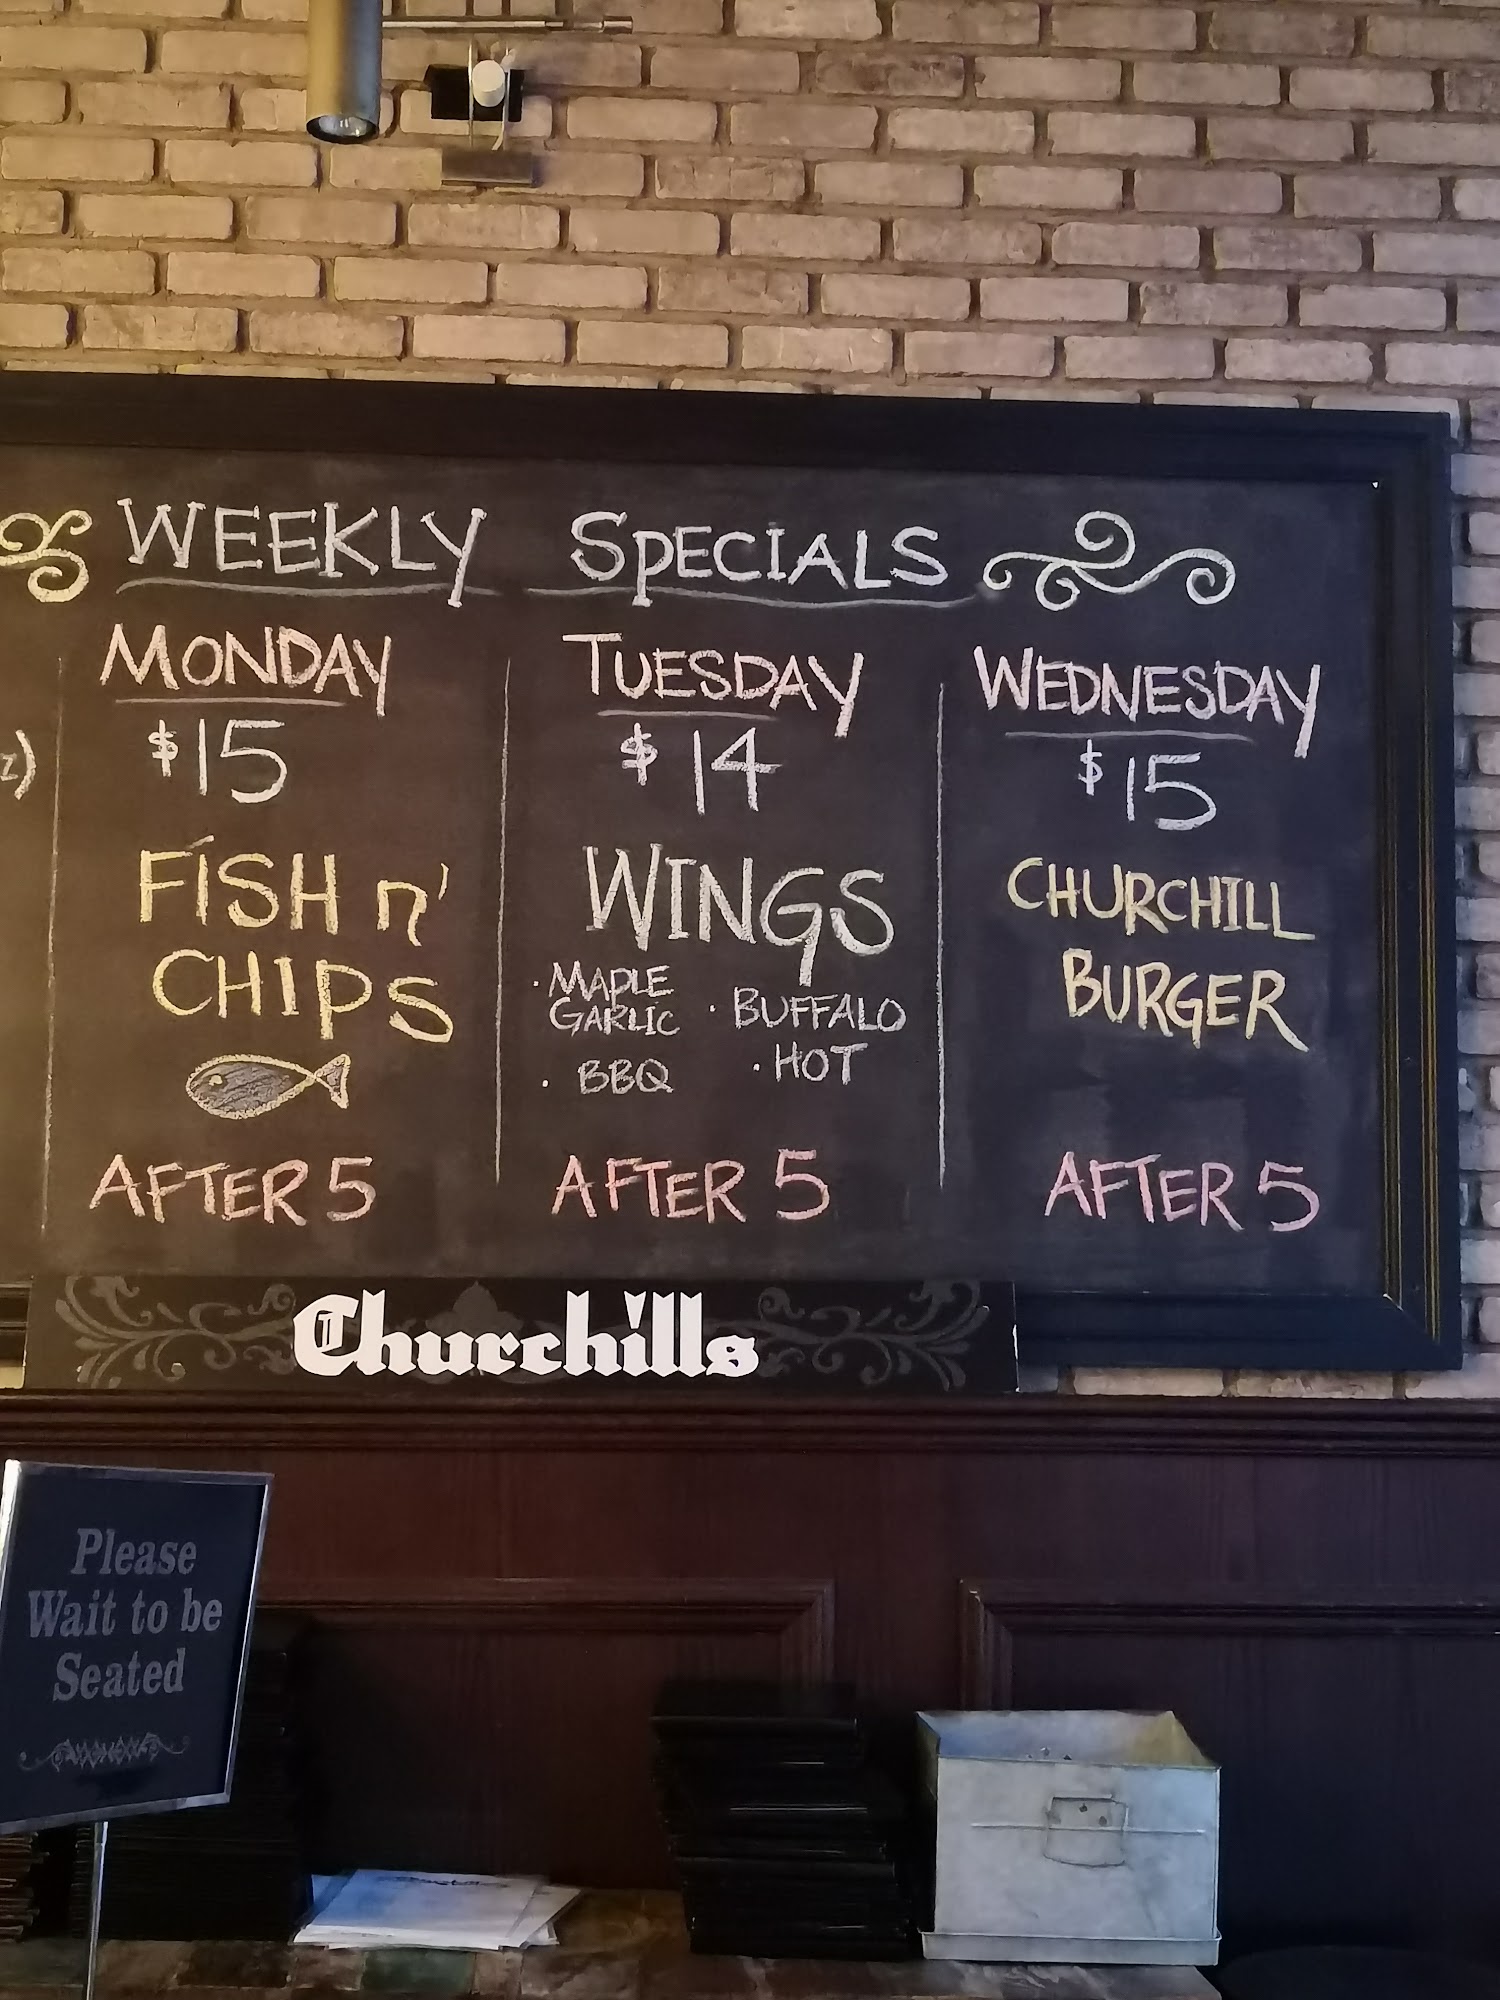 WEEKLY SPECIALS
MONDAY
$15
FISH n'
CHIPS
AFTER 5
TUESDAY
$14
WINGS
· MAPLE
GARLIC
· BUFFALO
· BBQ
· HOT
AFTER 5
WEDNESDAY
$15
CHURCHILL
BURGER
AFTER 5
Churchills
Please
Wait to be
Seated